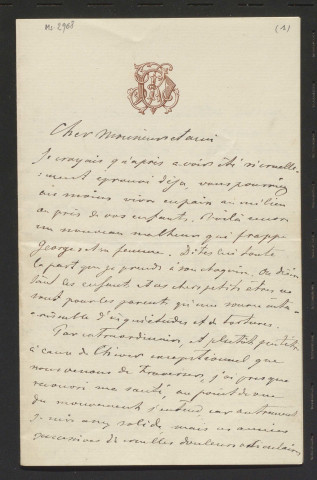 Ms 2968
(1)
Cher Monsieur et ami
Je croyais qu'après avoir été si cruelle-
-ment éprouvé déja, vous pourriez
au moins vivre en paix au milieu
ou près de vos enfants. Voilà encore
un nouveau malheur qui frappe
Georges et sa femme. Dites lui toute
la part que je prends à son chagrin.
les enfants et ces chers petits êtres ne
sont pour les parents qu'une source inta-
-rissable d'inquiétudes et de tortures.
Par extraordinaire, et plutôt peut être
à cause de l'hiver exceptionnel que
nous venons de traverser, j'ai presque
recouvré ma santé, au point de vue
du mouvement j'entend, car au travail
je suis assez solide, mais
successions de cruelles douleurs